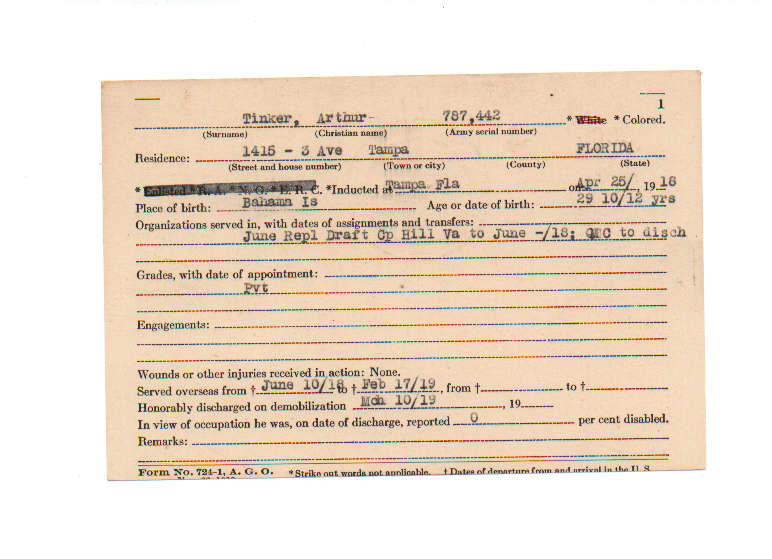 1
Tinker, Arthur- 787,442 * White * Colored.
(Surname) (Christian name) (Army serial number)
Residence: 1415 - 3 Ave Tampa FLORIDA
(Street and house number) (Town or city) (County) (State)
* Enlisted * R. A. * N. G. * E. R. C. *Inducted at Tampa Fla on Apr 25/, 1918
Place of birth: Bahama Is Age or date of birth: 29 10/12 yrs
Organizations served in, with dates of assignments and transfers:
June Repl Draft Cp Hill Va to June -/18; QMC to disch
Grades, with date of appointment:
Pvt
Engagements:
Wounds or other injuries received in action: None.
Served overseas from † June 10/18 to † Feb 17/19, from † to †
Honorably discharged on demobilization Mch 10/19, 19
In view of occupation he was, on date of discharge, reported 0 per cent disabled.
Remarks:
Form No. 724-1, A. G. O. * Strike out words not applicable. † Dates of departure from and arrival in the U. S.